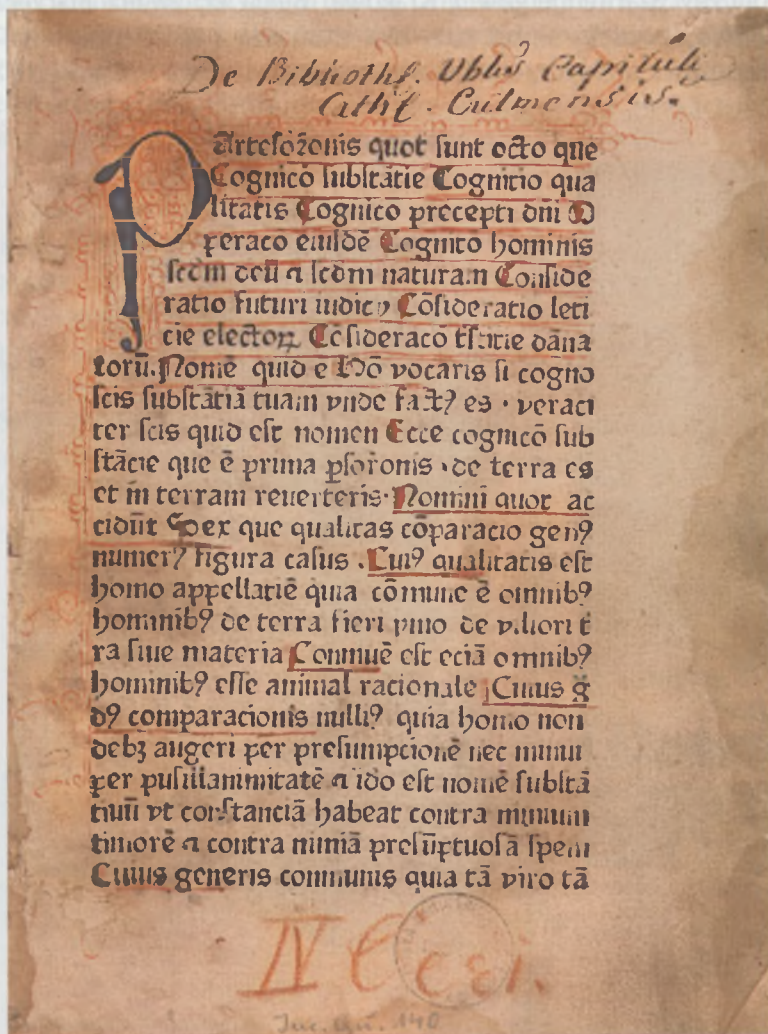 De Biblioth. Ublis Capituli
Cathl. Culmensis.
Partesorōnis quot sunt octo que
Cognicō substātie Cognitio qua
litatis Cognico precepti dni O
peraco eiusdē Cognito hominis
scdm deū ⁊ scdm naturam Conside
ratio futuri iudicy Cōsideratio leti
cie electoꝝ Cōsideracō tristicie dāna
torū. Nomē quid e Hō vocaris si cogno
scis substātiā tuam vnde factꝰ es · veraci
ter scis quid est nomen Ecce cognicō sub
stācie que ē prima ꝑsorōnis · de terra es
et in terram reuerteris · Nomini quot ac
cidūt Sex que qualitas cōparacio genꝰ
numerꝰ figura casus . Cuiꝰ qualitatis est
homo appellatiē quia cōmune ē omnibꝰ
hominibꝰ de terra fieri ymo de viliori t̄
ra siue materia Conmuē est eciā omnibꝰ
hominibꝰ esse animal racionale Cuius g
dꝰ comparacionis nulliꝰ quia homo non
debꝫ augeri per presumpcionē nec minui
per pusillanimitatē ⁊ ido est nomē substā
tiuū vt constanciā habeat contra nimium
timorē ⁊ contra nimiā presūptuosā spem
Cuius generis communis quia tā viro tā
IV
Inc. qu. 140